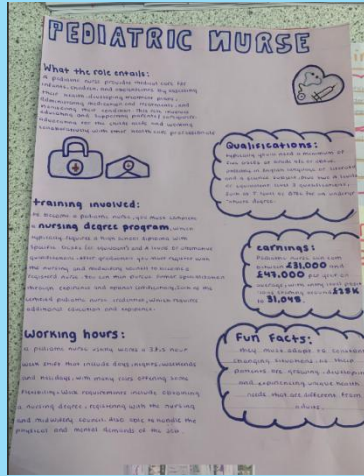 PEDIATRIC NURSE
What the role entails:
a pediatric nurse provides medical care for
infants, children, and adolescents by assessing
their health, developing treatment plans,
administering medication and treatments, and
monitoring their condition. This role involves
educating and supporting patients
advocating for the child's and working
collaboratively with other health care professionals
Qualifications:
typically you'll need a minimum of
five GCSEs at grade 4/C or above,
English language or literature
and a science subject, plus two A levels
or equivalent level 3 qualifications,
such as T level or BTEC for an undergrad
nurse degree.
training involved:
to become a pediatric nurse, you must complete
a nursing degree program, which
typically requires a high school diploma with
specific GCSEs (or equivalent) and A levels or alternative
qualifications. After graduation, you must register with
the nursing and midwifery council to become a
registered nurse. You can then pursue further specialization
through experience and optional certifications, such as the
certified pediatric nurse credential, which requires
additional education and experience.
earnings:
Pediatric nurse can earn
between £31,000 and
£47,000 per year on
average, with entry level posts
often starting around £28K
to 31,048.
Working hours:
a pediatric nurse usually works a 37.5 hour
week shifts that include days, nights, weekends
and holidays, with many roles offering some
flexibility. Work requirements include obtaining
a nursing degree, registering with the nursing
and midwifery council, also able to handle the
physical and mental demands of the job.
Fun facts:
they must adapt to constantly
changing situations, as their
patients are growing, developing
and experiencing unique health
needs that are different from
adults.